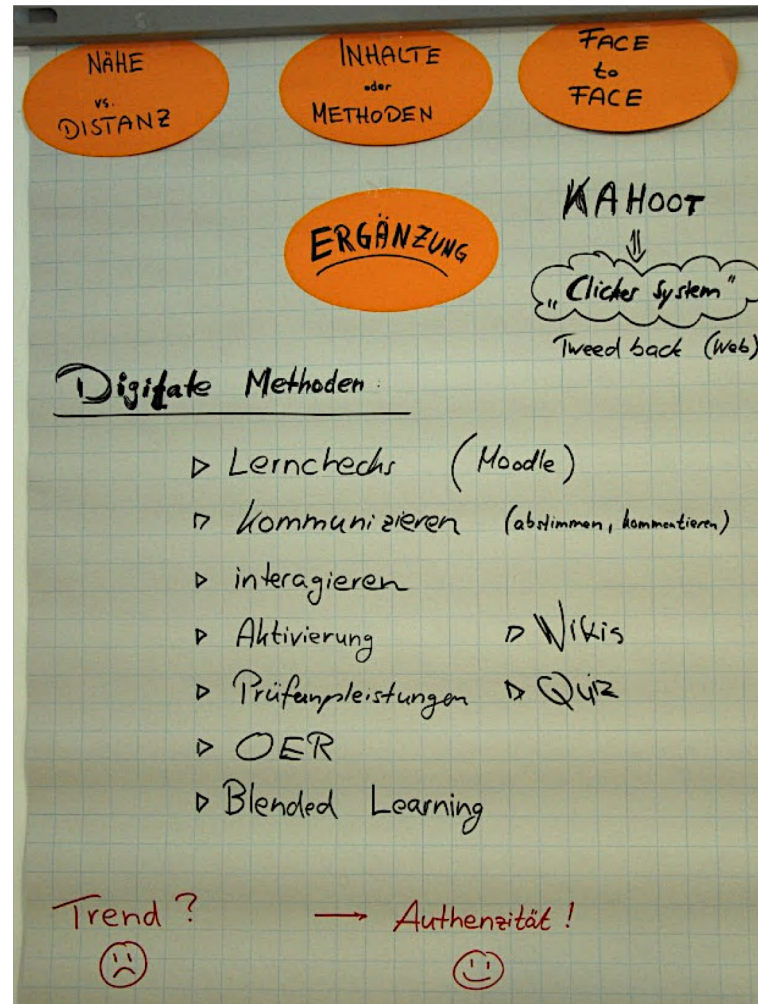 NÄHE
vs.
DISTANZ
INHALTE
oder
METHODEN
FACE
to
FACE
ERGÄNZUNG
KAHOOT
„Clicker System"
Tweed back (Web)
Digitale Methoden:
▷ Lernchecks (Moodle)
▷ kommunizieren (abstimmen, kommentieren)
▷ interagieren
▷ Aktivierung ▷ Wikis
▷ Prüfunpleistungen ▷ Quiz
▷ OER
▷ Blended Learning
Trend? → Authenzität!